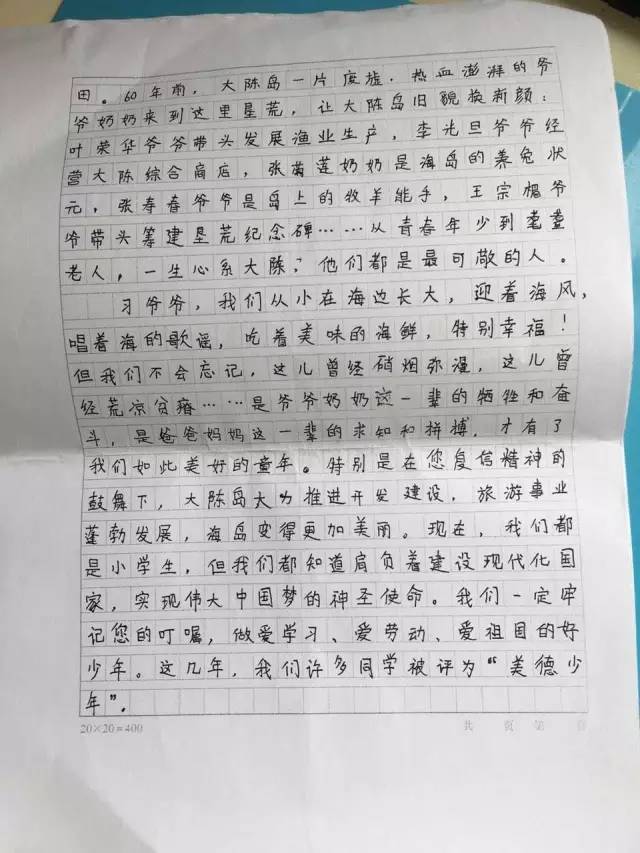 田。60年前，大陈岛一片废墟．热血澎湃的爷
爷奶奶来到这里垦荒，让大陈岛旧貌换新颜：
叶荣华爷爷带头发展渔业生产，李光旦爷爷经
营大陈综合商店，张菊莲奶奶是海岛的养兔状
元，张寿春爷爷是岛上的牧羊能手，王宗楣爷
爷带头筹建垦荒纪念碑……从青春年少到耄耋
老人，一生心系大陈，他们都是最可敬的人。
习爷爷，我们从小在海边长大，迎着海风，
唱着海的歌谣，吃着美味的海鲜，特别幸福！
但我们不会忘记，这儿曾经硝烟弥漫，这儿曾
经荒凉贫瘠……是爷爷奶奶这一辈的牺牲和奋
斗，是爸爸妈妈这一辈的求知和拼搏，才有了
我们如此美好的童年。特别是在您复信精神的
鼓舞下，大陈岛大力推进开发建设，旅游事业
蓬勃发展，海岛变得更加美丽。现在，我们都
是小学生，但我们都知道肩负着建设现代化国
家，实现伟大中国梦的神圣使命。我们一定牢
记您的叮嘱，做爱学习、爱劳动、爱祖国的好
少年。这几年，我们许多同学被评为“美德少
年”．
20×20=400 共 页 第 页